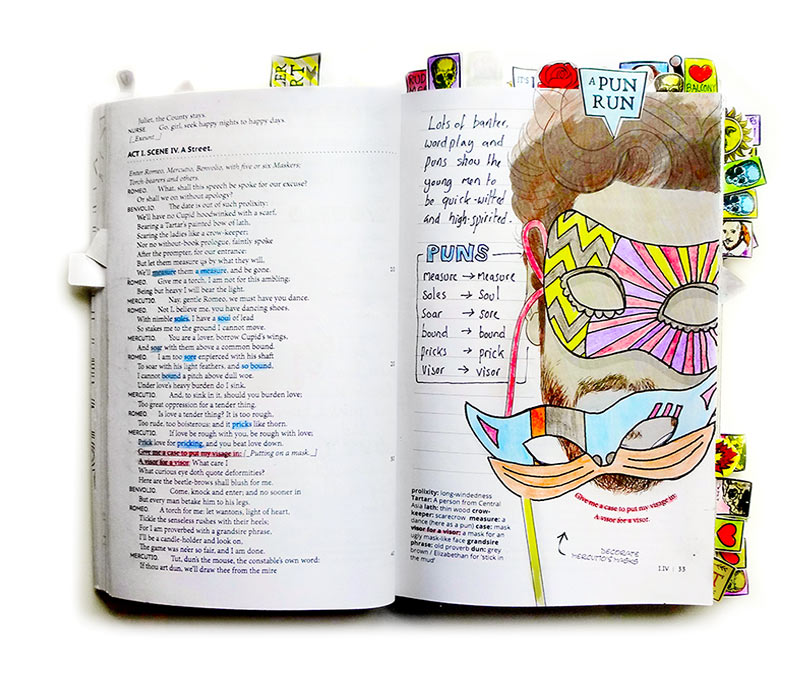 Juliet, the County stays.
NURSE. Go, girl, seek happy nights to happy days.
[_Exeunt._]
ACT I. SCENE IV. A Street.
Enter Romeo, Mercutio, Benvolio, with five or six Maskers;
Torch-bearers and others.
ROMEO. What, shall this speech be spoke for our excuse?
Or shall we on without apology?
BENVOLIO. The date is out of such prolixity:
We'll have no Cupid hoodwinked with a scarf,
Bearing a Tartar's painted bow of lath,
Scaring the ladies like a crow-keeper;
Nor no without-book prologue, faintly spoke
After the prompter, for our entrance:
But let them measure us by what they will,
We'll measure them a measure, and be gone.
ROMEO. Give me a torch, I am not for this ambling;
Being but heavy I will bear the light.
MERCUTIO. Nay, gentle Romeo, we must have you dance.
ROMEO. Not I, believe me, you have dancing shoes,
With nimble soles, I have a soul of lead
So stakes me to the ground I cannot move.
MERCUTIO. You are a lover, borrow Cupid's wings,
And soar with them above a common bound.
ROMEO. I am too sore enpierced with his shaft
To soar with his light feathers, and so bound,
I cannot bound a pitch above dull woe.
Under love's heavy burden do I sink.
MERCUTIO. And, to sink in it, should you burden love;
Too great oppression for a tender thing.
ROMEO. Is love a tender thing? It is too rough,
Too rude, too boisterous; and it pricks like thorn.
MERCUTIO. If love be rough with you, be rough with love;
Prick love for pricking, and you beat love down.
Give me a case to put my visage in: [_Putting on a mask._]
A visor for a visor. What care I
What curious eye doth quote deformities?
Here are the beetle-brows shall blush for me.
BENVOLIO. Come, knock and enter; and no sooner in
But every man betake him to his legs.
ROMEO. A torch for me: let wantons, light of heart,
Tickle the senseless rushes with their heels;
For I am proverb'd with a grandsire phrase,
I'll be a candle-holder and look on,
The game was ne'er so fair, and I am done.
MERCUTIO. Tut, dun's the mouse, the constable's own word:
If thou art dun, we'll draw thee from the mire
A PUN
RUN
BALCONY
Lots of banter,
wordplay and
puns show the
young men to
be quick-witted
and high-spirited.
PUNS
Measure → measure
Soles → Soul
Soar → sore
bound → bound
pricks → prick
Visor → visor
prolixity: long-windedness
Tartar: A person from Central
Asia lath: thin wood crow-
keeper: scarecrow measure: a
dance (here as a pun) case: mask
visor for a visor: a mask for an
ugly mask-like face grandsire
phrase: old proverb dun: grey
brown / Elizabethan for 'stick in
the mud'
Give me a case to put my visage in:
A visor for a visor.
DECORATE
MERCUTIO'S MASKS
I.IV | 33